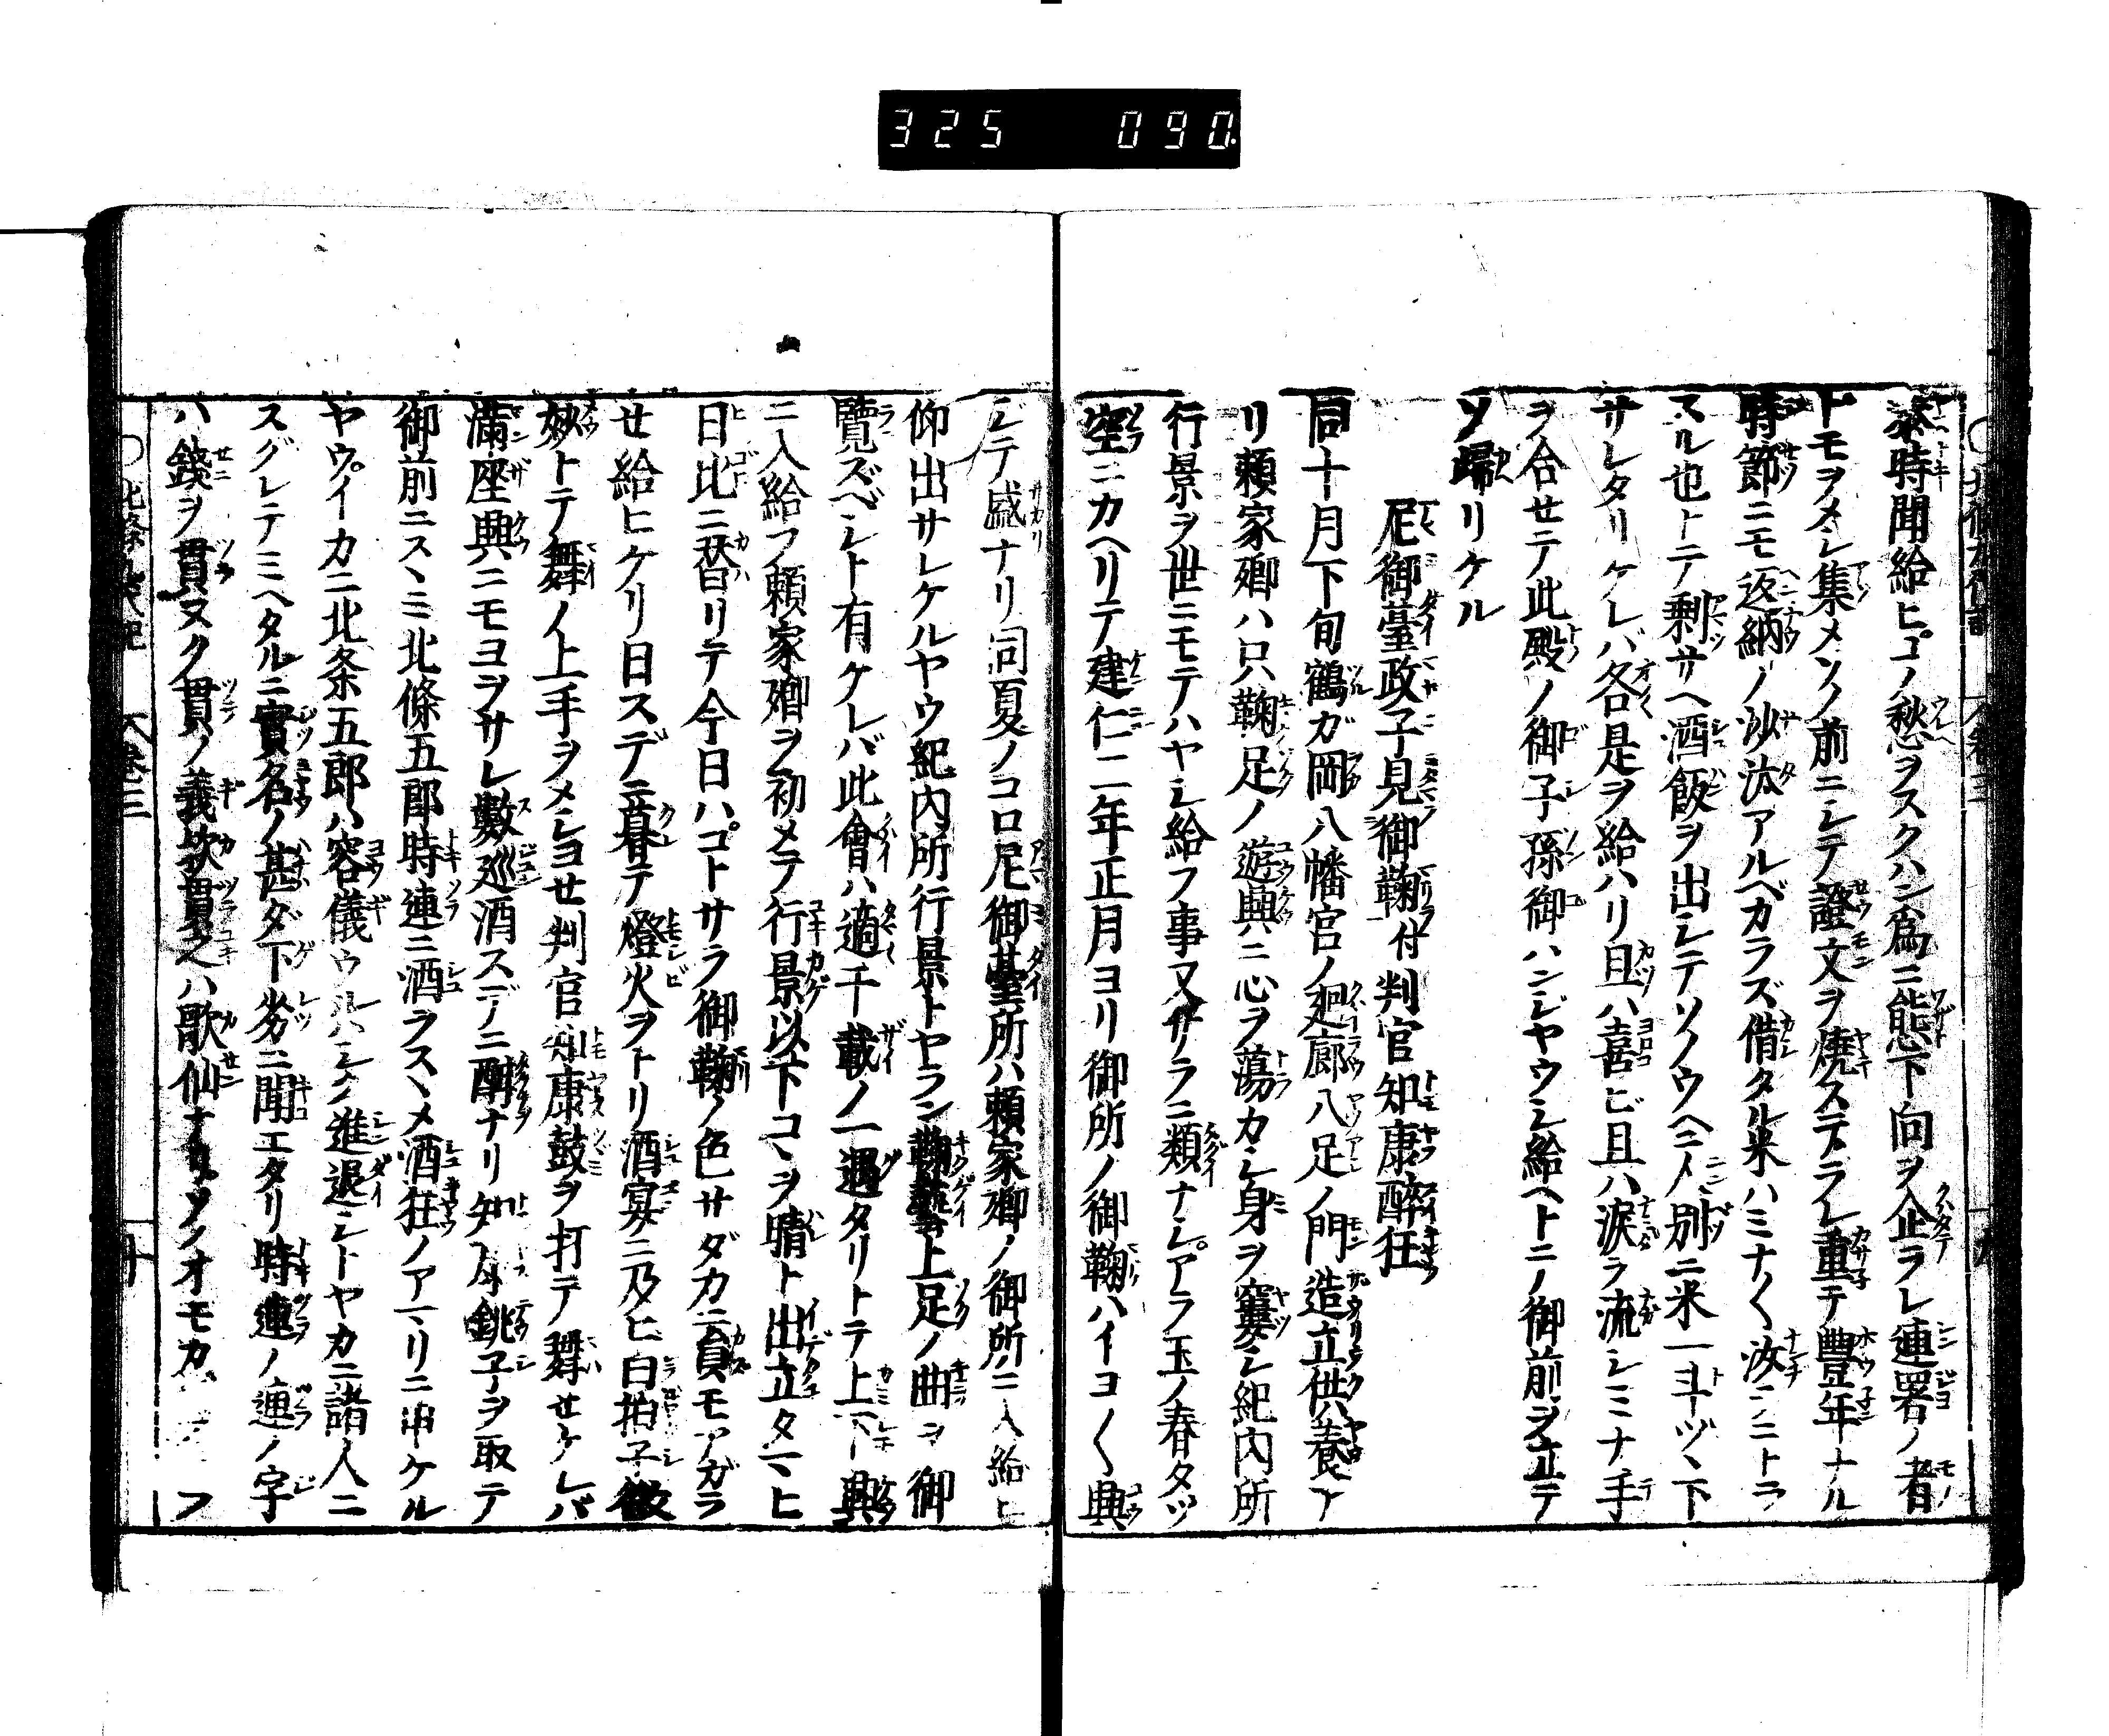 325 090
泰時聞給ヒコノ愁ヲスクハン爲ニ態下向ヲ企ラレ連署ノ者
トモヲメシ集メソノ前ニシテ證文ヲ燒ステラレ重テ豐年ナル
時節ニモ返納ノ沙汰アルベカラズ借タル米ハミナ〱汝ニトラ
スル也トテ剩サヘ酒飯ヲ出シテソノウヘニ人別ニ米一斗ヅヽ下
サレタリケレバ各是ヲ給ハリ且ハ喜ビ且ハ涙ヲ流シミナ手
ヲ合セテ此殿ノ御子孫御ハンジヤウシ給ヘトテ御前ヲ立テ
ソ歸リケル
尼御臺政子見御鞠付判官知康醉狂
同十月下旬鶴ガ岡八幡宮ノ廻廊八足ノ門造立供養ア
リ頼家卿ハ只鞠足ノ遊興ニ心ヲ蕩カシ身ヲ窶シ紀内所
行景ヲ世ニモテハヤシ給フ事又サラニ類ナシアラ玉ノ春タツ
空ニカヘリテ建仁二年正月ヨリ御所ノ御鞠ハイヨ〱興
シテ盛ナリ同夏ノコロ尼御臺所ハ頼家卿ノ御所ニ入給ヒ
仰出サレケルヤウ紀内所行景トヤラン鞠藝上足ノ曲ヲ御
覽ズベシト有ケレバ此會ハ適千載ノ一遇タリトテ上下興
ニ入給フ頼家卿ヲ初メテ行景以下コヽヲ晴ト出立タマヒ
日比ニ替リテ今日ハコトサラ御鞠ノ色サダカニ員モアガラ
せ給ヒケリ日スデニ暮テ燈火ヲトリ酒宴ニ及ヒ白拍子微
妙トテ舞ノ上手ヲメシヨせ判官知康鼓ヲ打テ舞せケレバ
滿座興ニモヨヲサレ數巡酒スデニ酣ナリ知康銚子ヲ取テ
御前ニスヽミ北條五郎時連ニ酒ヲスヽメ酒狂ノアマリニ申ケル
ヤウイカニ北条五郎ハ容儀ウルハシク進退シトヤカニ諸人ニ
スグレテミヘタルニ實名ノ甚ダ下劣ニ聞エタリ時連ノ連ノ字
ハ錢ヲ貫ヌク貫ノ義歟貫之ハ歌仙ナリソノオモカ
○北條九代記 巻三 十